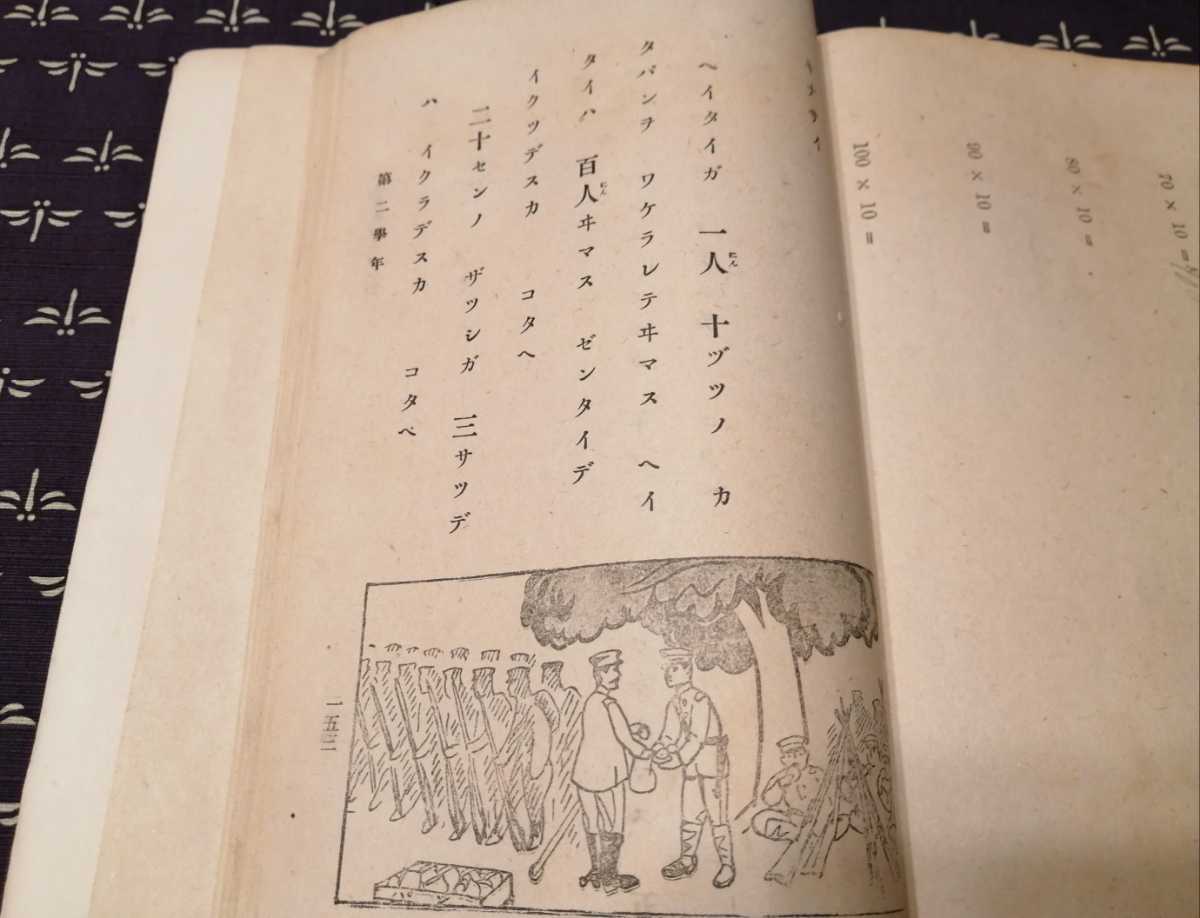 70 × 10 =
80 × 10 =
90 × 10 =
100 × 10 =
ヘイタイガ 一人 十ヅツノ カ
にん
タパンヲ ワケラレテヰマス ヘイ
タイハ 百人ヰマス ゼンタイデ
にん
イクツデスカ コタヘ
二十センノ ザツシガ 三サツデ
ハ イクラデスカ コタヘ
第二學年
一五三
パン